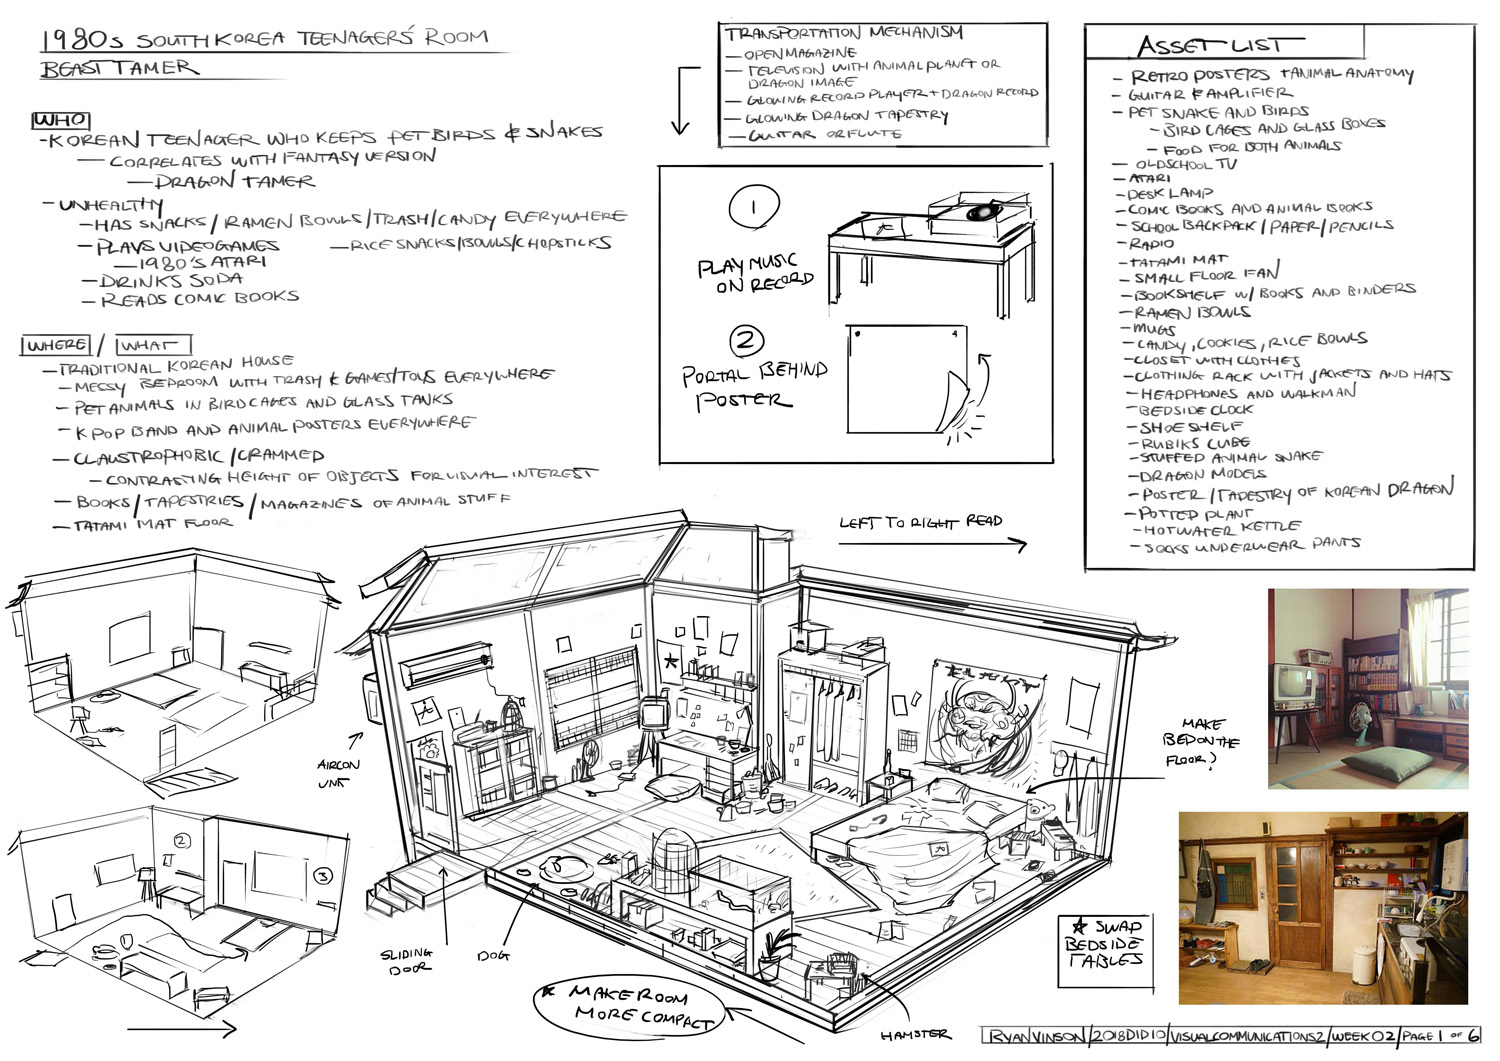 1980s SOUTH KOREA TEENAGERS' ROOM
BEAST TAMER
WHO
-KOREAN TEENAGER WHO KEEPS PET BIRDS & SNAKES
- CORRELATES WITH FANTASY VERSION
- DRAGON TAMER
- UNHEALTHY
- HAS SNACKS/RAMEN BOWLS/TRASH/CANDY EVERYWHERE
- PLAYS VIDEOGAMES
- RICE SNACKS/BOWLS/CHOPSTICKS
- 1980'S ATARI
- DRINKS SODA
- READS COMIC BOOKS
WHERE / WHAT
- TRADITIONAL KOREAN HOUSE
- MESSY BEDROOM WITH TRASH & GAMES/TOYS EVERYWHERE
- PET ANIMALS IN BIRDCAGES AND GLASS TANKS
- K POP BAND AND ANIMAL POSTERS EVERYWHERE
- CLAUSTROPHOBIC/CRAMMED
- CONTRASTING HEIGHT OF OBJECTS FOR VISUAL INTEREST
- BOOKS/TAPESTRIES/MAGAZINES OF ANIMAL STUFF
- TATAMI MAT FLOOR
TRANSPORTATION MECHANISM
- OPEN MAGAZINE
- TELEVISION WITH ANIMAL PLANET OR
DRAGON IMAGE
- GLOWING RECORD PLAYER + DRAGON RECORD
- GLOWING DRAGON TAPESTRY
- GUITAR OR FLUTE
1
PLAY MUSIC
ON RECORD
2
PORTAL BEHIND
POSTER
ASSET LIST
- RETRO POSTERS + ANIMAL ANATOMY
- GUITAR & AMPLIFIER
- PET SNAKE AND BIRDS
- BIRD CAGES AND GLASS BOXES
- FOOD FOR BOTH ANIMALS
- OLDSCHOOL TV
- ATARI
- DESK LAMP
- COMIC BOOKS AND ANIMAL BOOKS
- SCHOOL BACKPACK/PAPER/PENCILS
- RADIO
- TATAMI MAT
- SMALL FLOOR FAN
- BOOKSHELF W/ BOOKS AND BINDERS
- RAMEN BOWLS
- MUGS
- CANDY, COOKIES, RICE BOWLS
- CLOSET WITH CLOTHES
- CLOTHING RACK WITH JACKETS AND HATS
- HEADPHONES AND WALKMAN
- BEDSIDE CLOCK
- SHOE SHELF
- RUBIKS CUBE
- STUFFED ANIMAL SNAKE
- DRAGON MODELS
- POSTER/TAPESTRY OF KOREAN DRAGON
- POTTED PLANT
- HOT WATER KETTLE
- SOCKS UNDERWEAR PANTS
LEFT TO RIGHT READ
AIRCON
UNIT
MAKE
BED ON THE
FLOOR?
2
3
1
SLIDING
DOOR
DOG
MAKE ROOM
MORE COMPACT
HAMSTER
SWAP
BEDSIDE
TABLES
RYAN VINSON/2018DID10/VISUALCOMMUNICATIONS2/WEEK 02/PAGE 1 OF 6